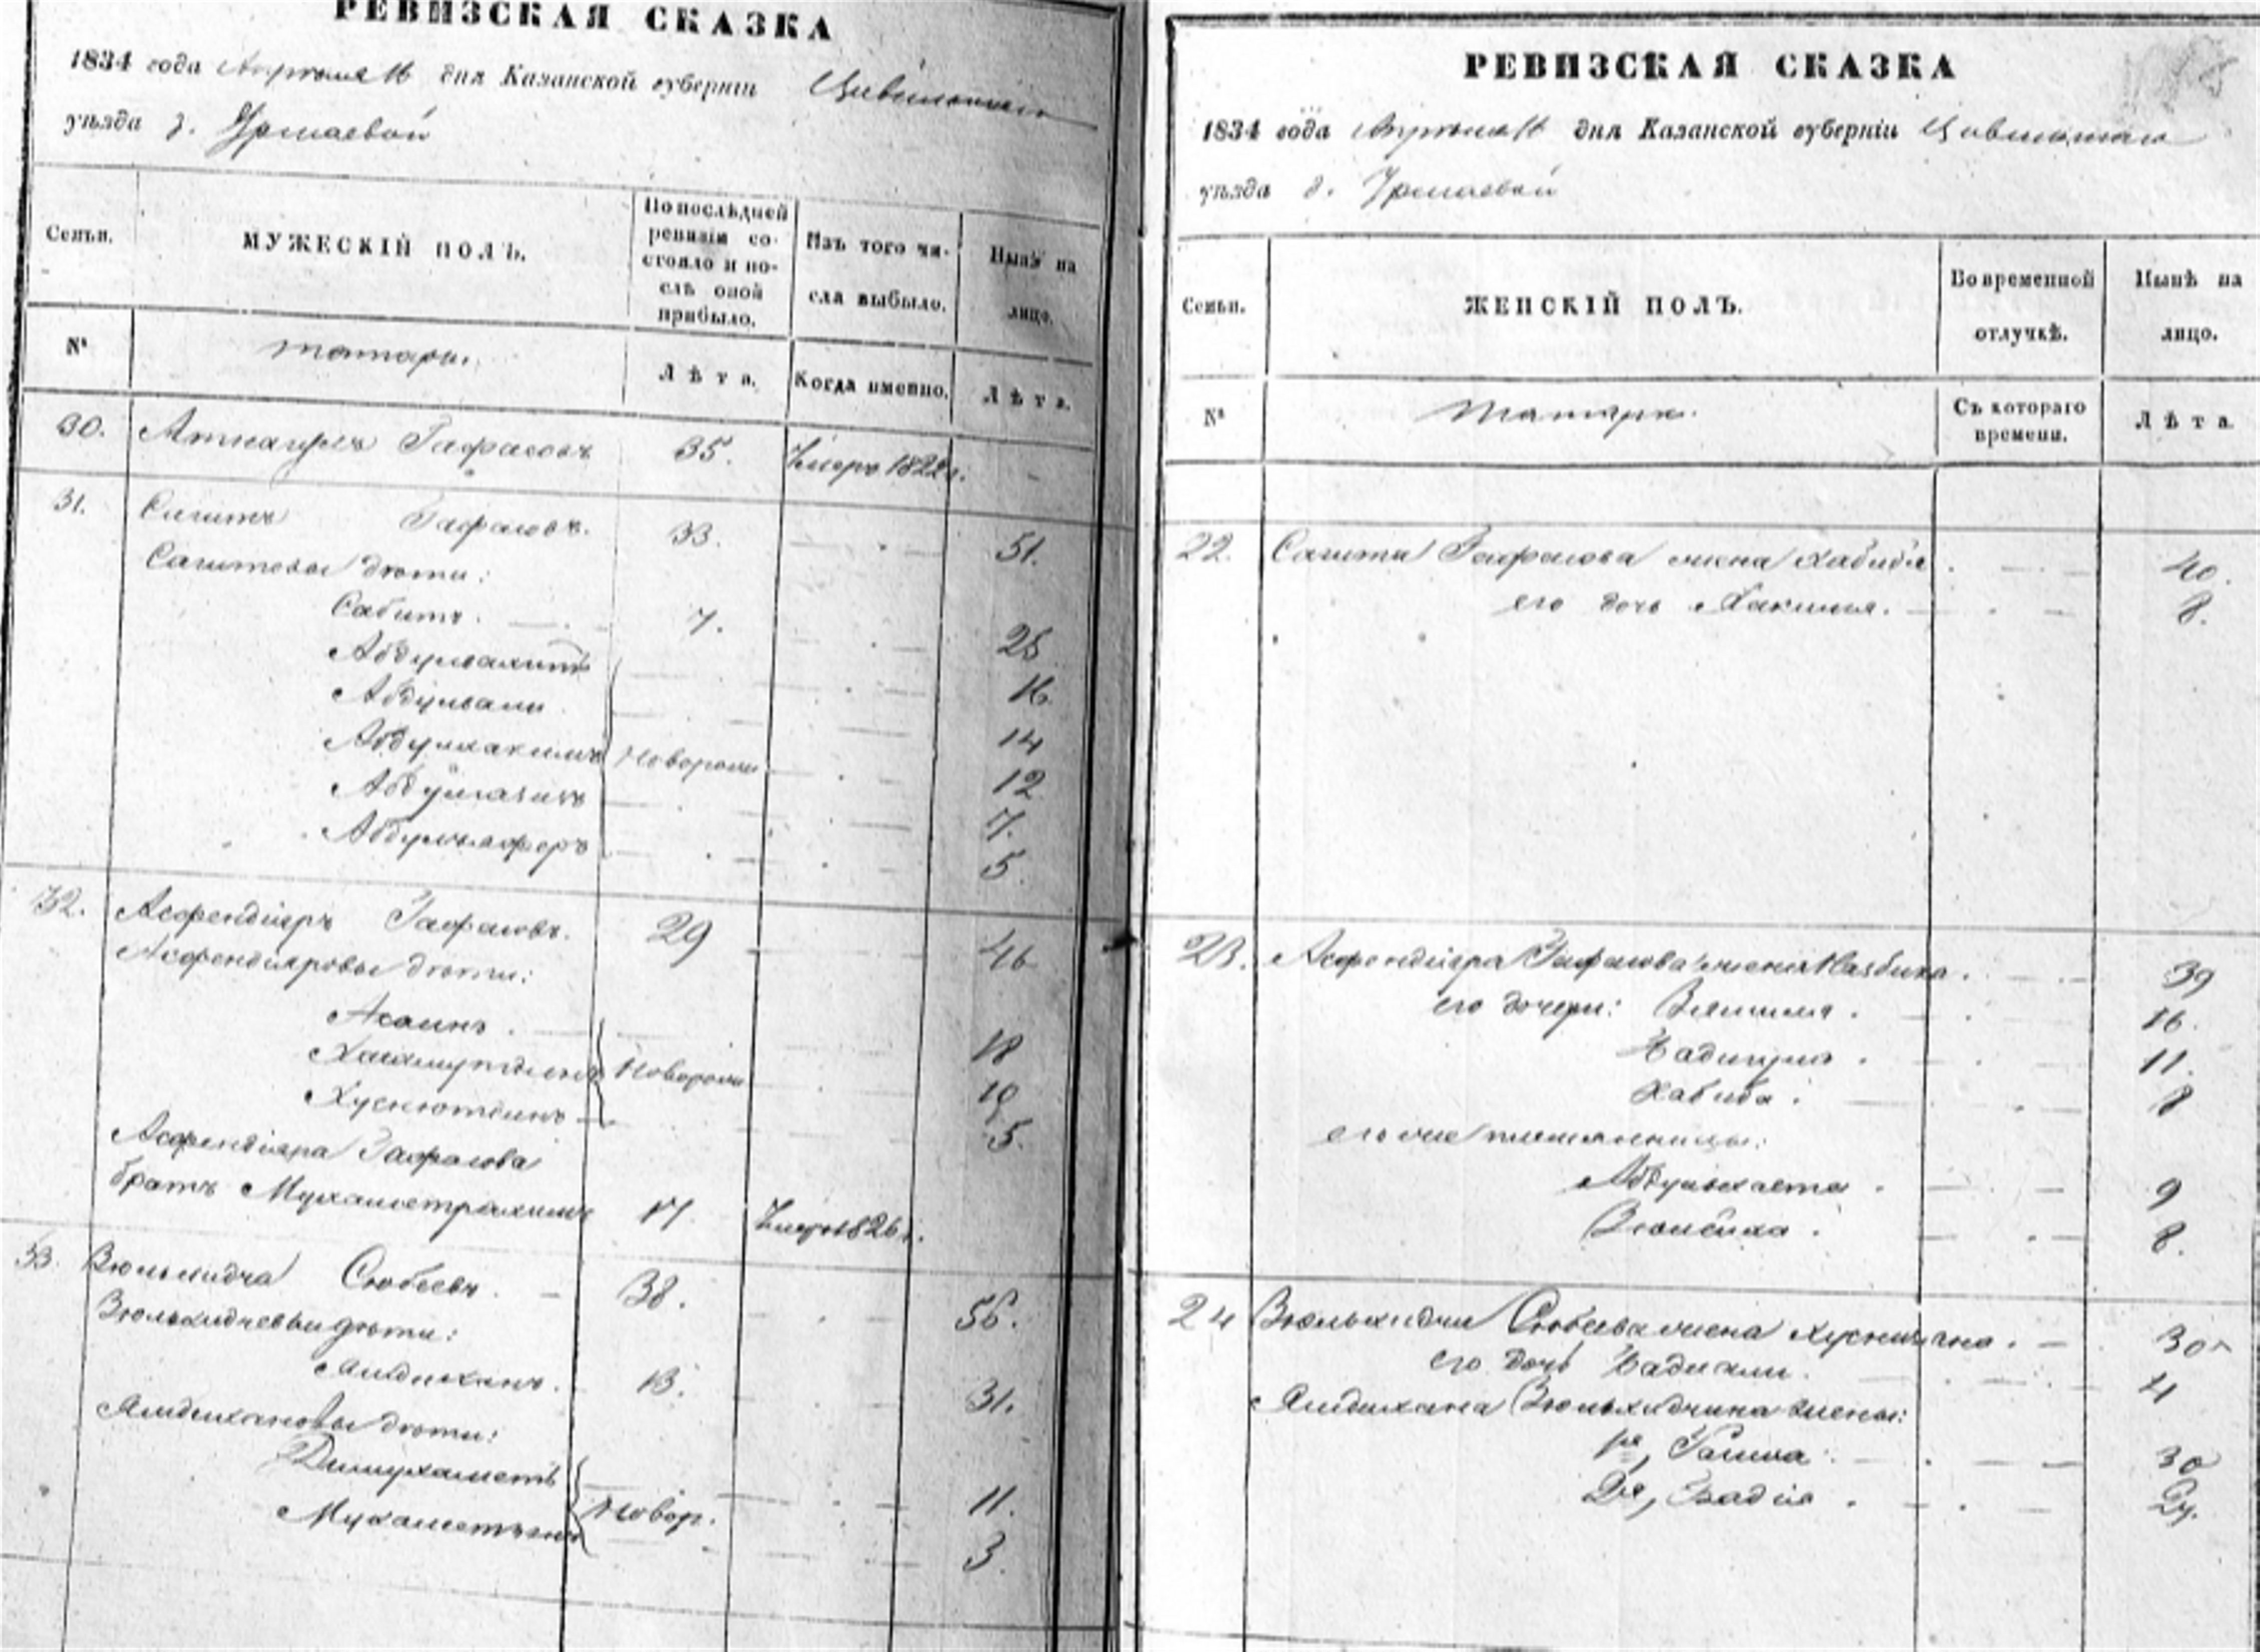 РЕВИЗСКАЯ СКАЗКА
1834 года Апрѣля 16 дня Казанской губерніи Цивильскаго
уѣзда д. Урмаевой
Семьи. МУЖЕСКІЙ ПОЛЪ. По послѣдней ревизіи состояло и послѣ оной прибыло. Изъ того числа выбыло. Нынѣ на лицо.
№ татары. Лѣта. Когда именно. Лѣта.
30. Гафаровъ 35. Умеръ 1822 г. -
31. Сагитъ Гафаровъ. 33. 51.
Сагитовы дѣти:
Сабитъ. 7. 25
Абдулвахитъ 16
Абдулвали 14
Абдулхакимъ Новорожд 12
Абдулгазизъ 7.
5.
32. Асфендіяръ Гафаровъ. 29 46
Асфендіяровы дѣти:
18
Новорожд 10
Хуснютдинъ 5.
Асфендіяра Гафарова
братъ Мухаметрахимъ 17. Умеръ 1826 г.
33. Зюльхидча Сюбеевъ. 38. 56.
Зюльхидчевы дѣти:
Алмдиханъ. 13. 31.
Алмдихановы дѣти:
Динмухаметь Новор. 11.
3
РЕВИЗСКАЯ СКАЗКА
1834 года Апрѣля 16 дня Казанской губерніи Цивильскаго
уѣзда д. Урмаевой
Семьи. ЖЕНСКІЙ ПОЛЪ. Во временной отлучкѣ. Нынѣ на лицо.
№ татарки. Съ котораго времени. Лѣта.
22. Сагита Гафарова жена Хабиба 40.
его дочь Хакимя. 8.
23. Асфендіяра Гафарова жена Назбика. 39
его дочери: 16.
11.
Хабиба. 8
его же племянницы:
9
8.
24 Зюльхидчи Сюбеева жена Хуснизяна. 30
его дочь 4
Алмдихана Зюльхидчина жены:
1я, Галима. 30
2я, 27.